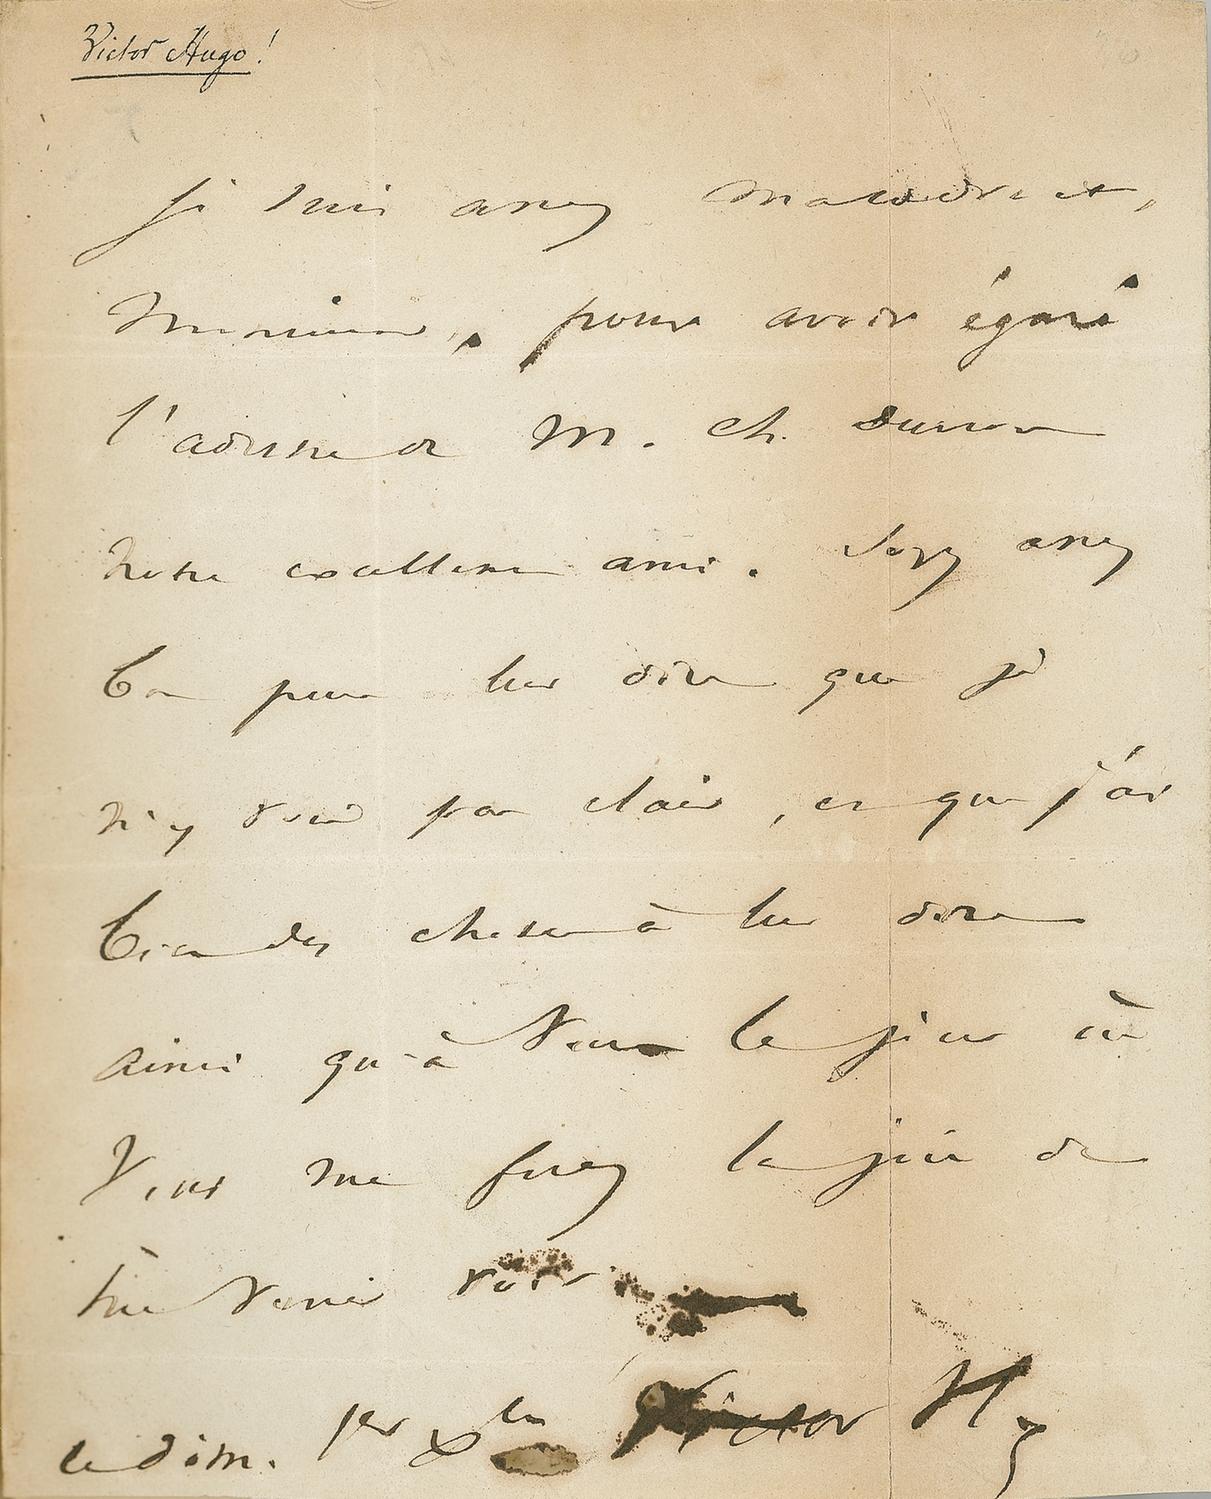 Victor Hugo!
Je suis assez maladroit,
Monsieur, pour avoir égaré
l'adresse de M. Ch.
notre excellent ami. Soyez assez
bon pour lui dire que je
n'y vois pas clair, et que j'ai
bien des choses à lui dire
ainsi qu'à vous le jour où
vous me ferez la joie de
me venir voir
le dim. 1er Xbre Victor H